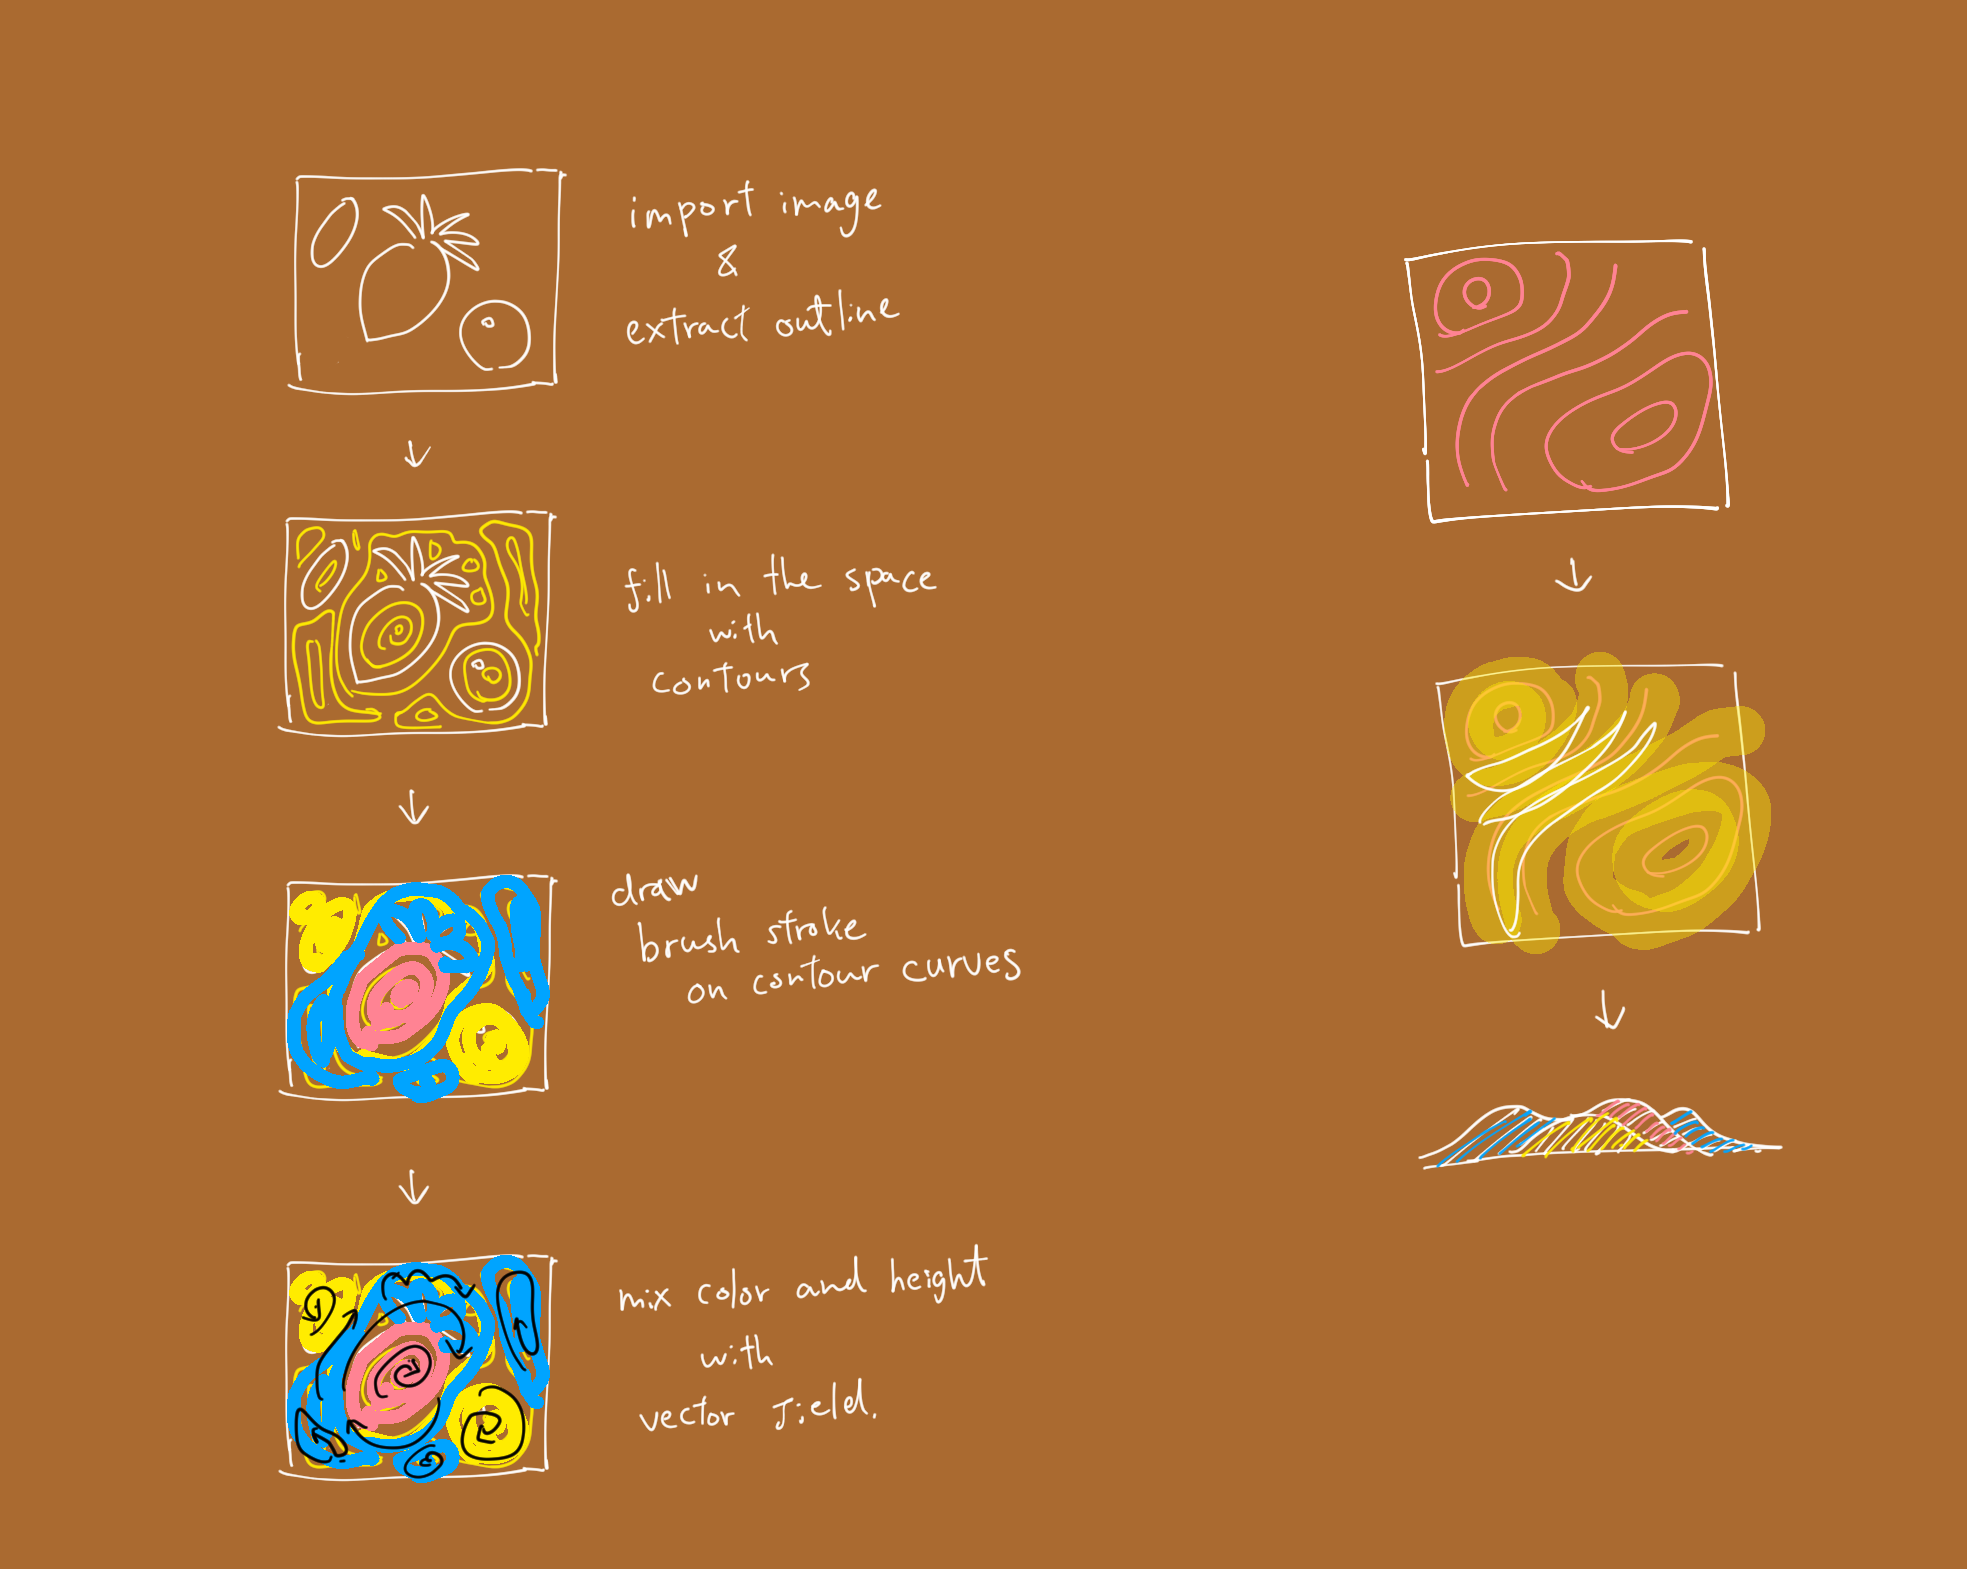 import image
&
extract outline
fill in the space
with
contours
draw
brush stroke
on contour curves
mix color and height
with
vector field.